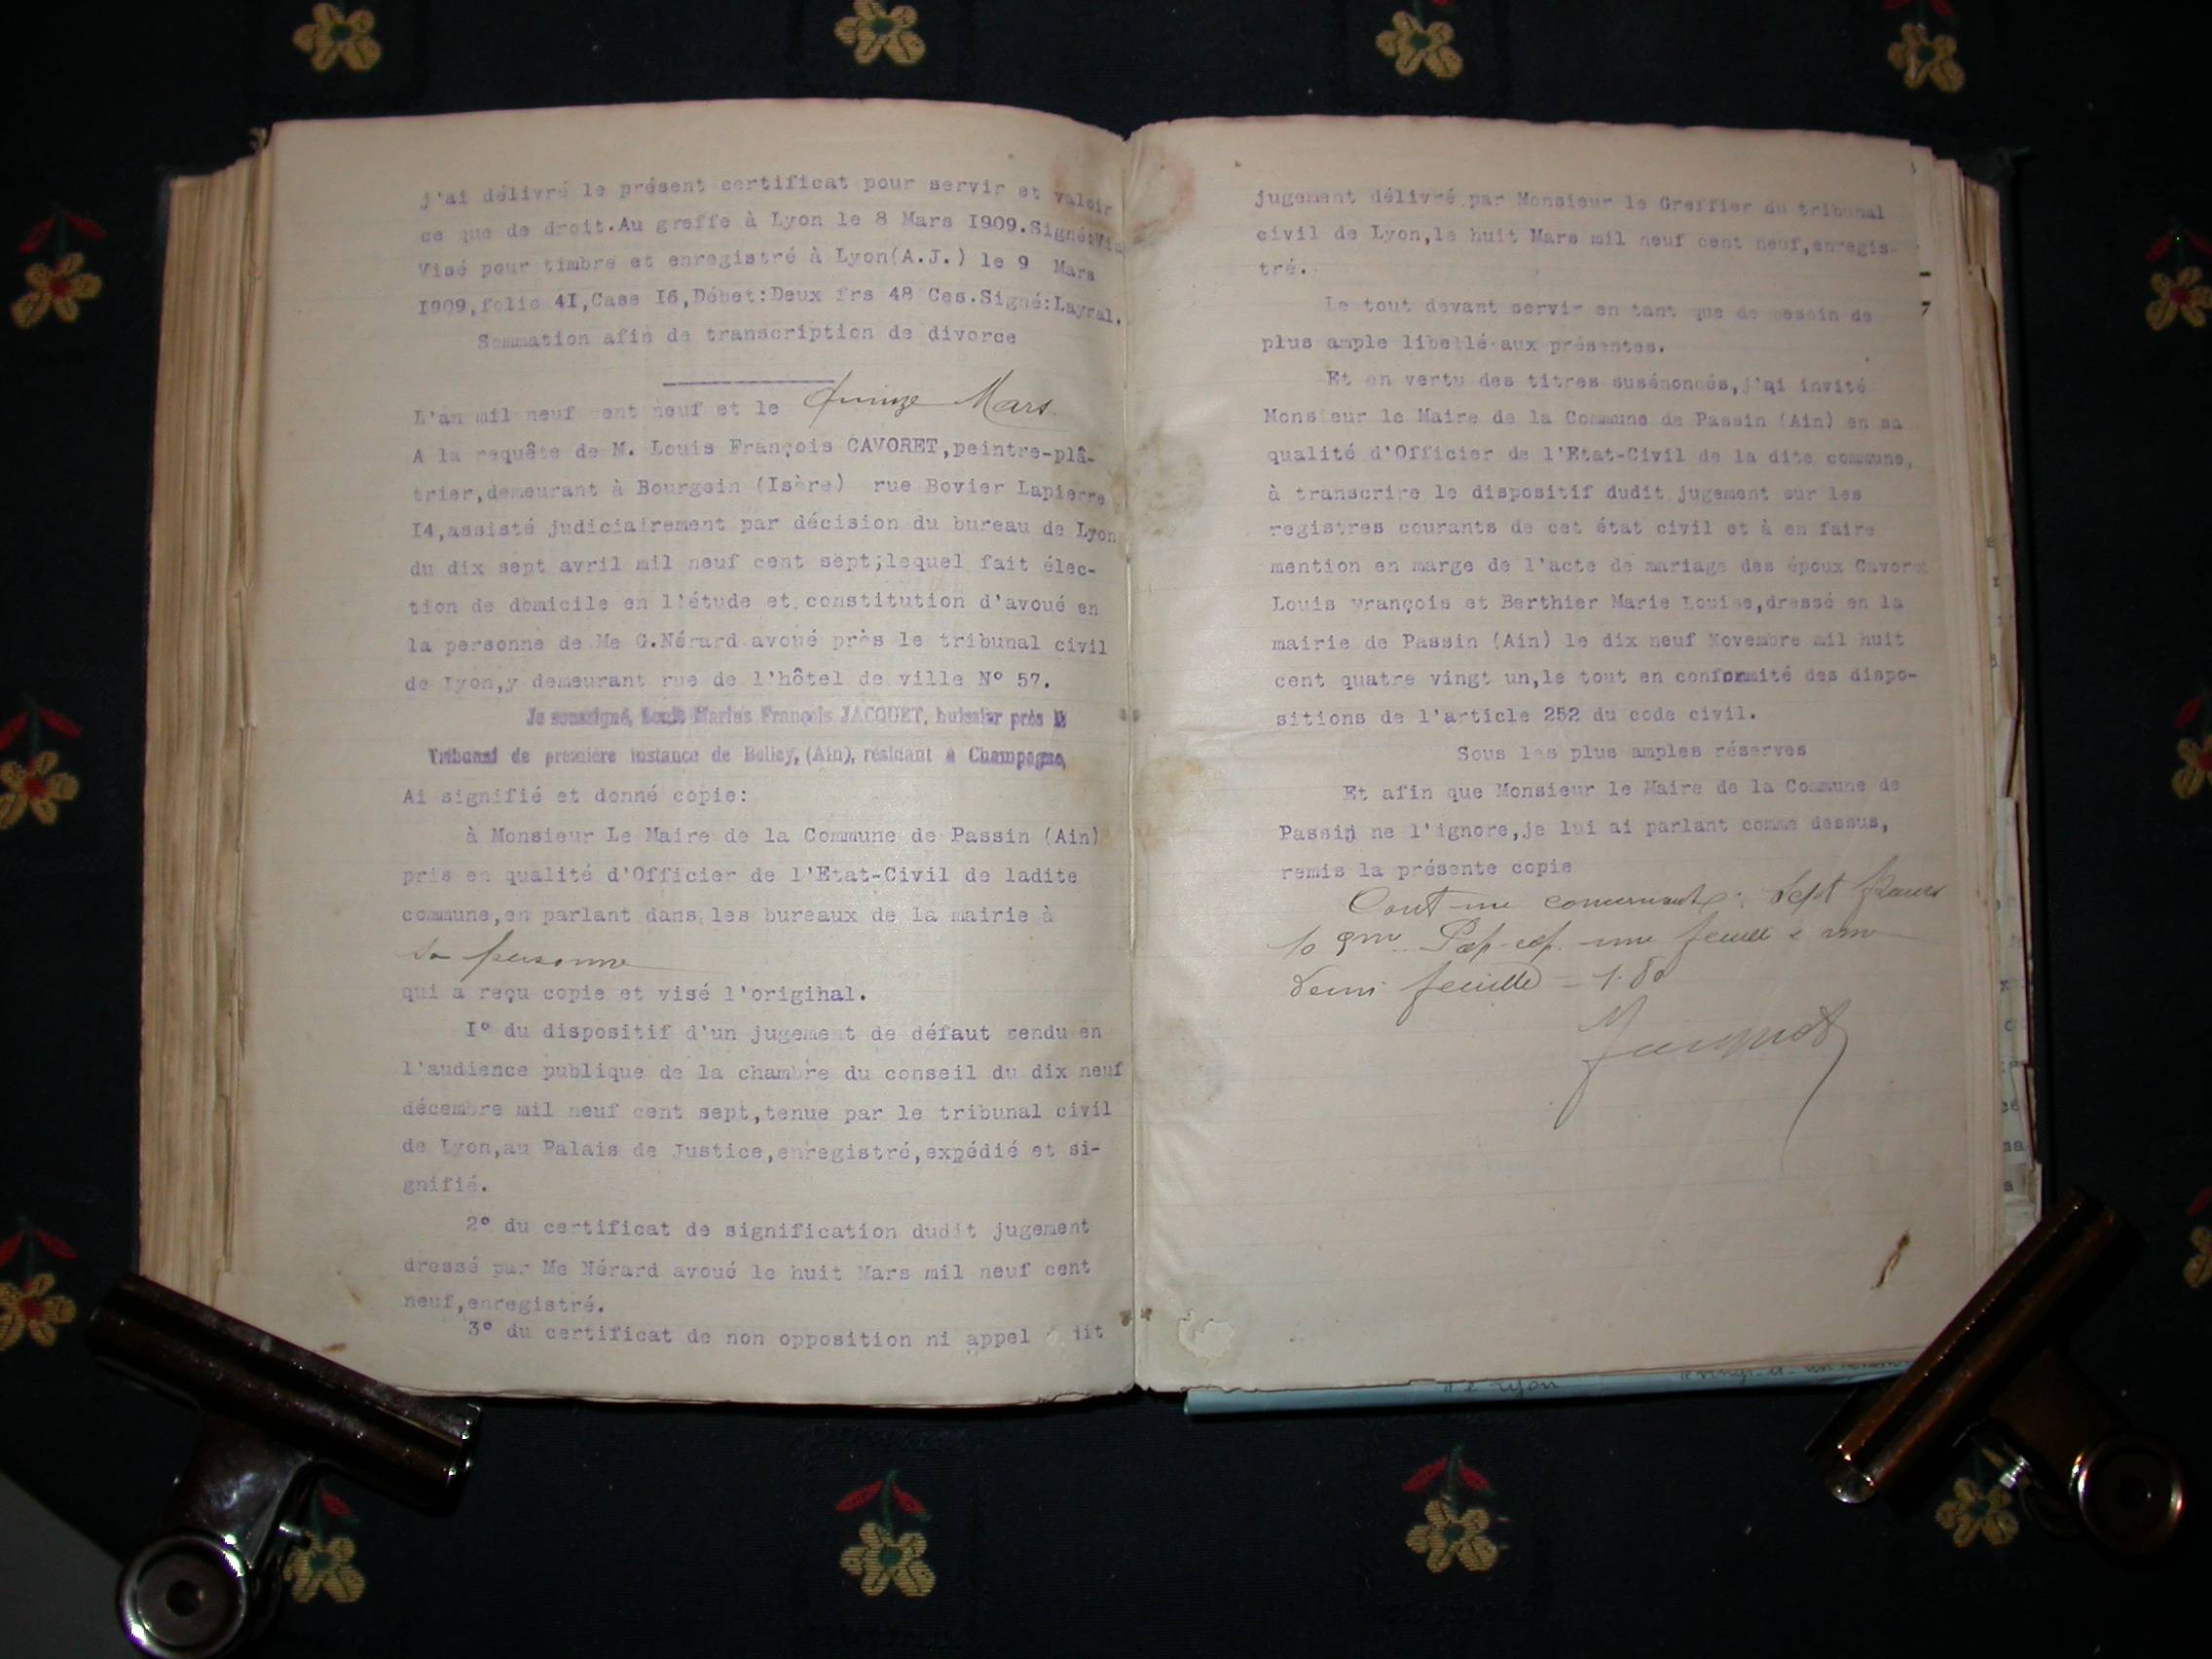 j'ai délivré le présent certificat pour servir et valoir
ce que de droit.Au greffe à Lyon le 8 Mars I909.Signé:Via
Visé pour timbre et enregistré à Lyon(A.J.) le 9 Mars
I909,folio 4I,Case I6,Débet:Deux frs 48 Ces.Signé:Layral.
Sommation afin de transcription de divorce
L'an mil neuf cent neuf et le Quinze Mars
A la requête de M. Louis François CAVORET,peintre-plâ-
trier,demeurant à Bourgoin (Isère) rue Bovier Lapierre
I4,assisté judiciairement par décision du bureau de Lyon
du dix sept avril mil neuf cent sept;lequel fait élec-
tion de domicile en l'étude et constitution d'avoué en
la personne de Me G.Nérard avoué près le tribunal civil
de Lyon,y demeurant rue de l'hôtel de ville N° 57.
Je soussigné, Louis Marius François JACQUET, huissier près le
Tribunal de première instance de Belley, (Ain), résidant à Champagne,
Ai signifié et donné copie:
à Monsieur Le Maire de la Commune de Passin (Ain)
pris en qualité d'Officier de l'Etat-Civil de ladite
commune,en parlant dans les bureaux de la mairie à
sa personne
qui a reçu copie et visé l'origihal.
I° du dispositif d'un jugement de défaut rendu en
l'audience publique de la chambre du conseil du dix neuf
décembre mil neuf cent sept,tenue par le tribunal civil
de Lyon,au Palais de Justice,enregistré,expédié et si-
gnifié.
2° du certificat de signification dudit jugement
dressé par Me Nérard avoué le huit Mars mil neuf cent
neuf,enregistré.
3° du certificat de non opposition ni appel dudit
jugement délivré par Monsieur le Greffier du tribunal
civil de Lyon,le huit Mars mil neuf cent neuf,enregis-
tré.
Le tout devant servir en tant que de besoin de
plus ample libellé aux présentes.
Et en vertu des titres susénoncés,j'ai invité
Monsieur le Maire de la Commune de Passin (Ain) en sa
qualité d'Officier de l'Etat-Civil de la dite commune,
à transcrire le dispositif dudit jugement sur les
registres courants de cet état civil et à en faire
mention en marge de l'acte de mariage des époux Cavoret
Louis François et Berthier Marie Louise,dressé en la
mairie de Passin (Ain) le dix neuf Novembre mil huit
cent quatre vingt un,le tout en conformité des dispo-
sitions de l'article 252 du code civil.
Sous les plus amples réserves
Et afin que Monsieur le Maire de la Commune de
Passin ne l'ignore,je lui ai parlant comme dessus,
remis la présente copie
Cout : Sept francs
une feuille & une
demi feuille = 1.80
Jacquet
de Lyon